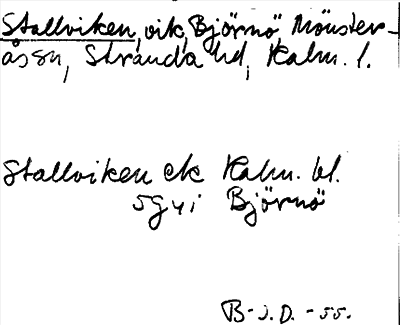 Stallviken, vik, Björnö, Mönster-
ås sn, Stranda hd, Kalm. l.
Stallviken ek Kalm. bl.
5g4i Björnö
B-J.D. -55.